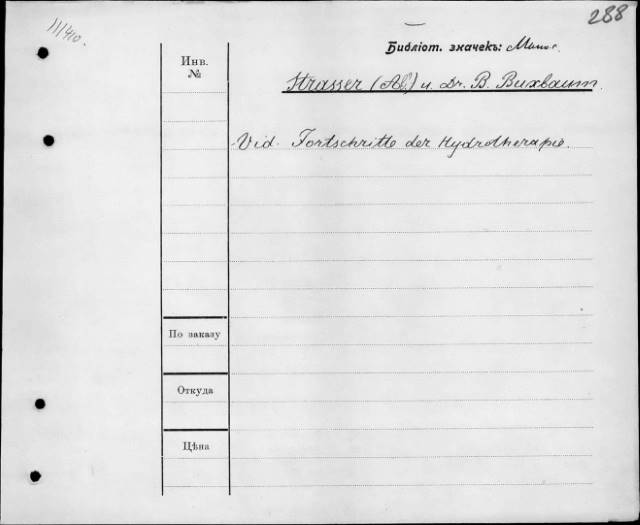 288
Библіот. значекъ:
Инв.
№
Strasser (Al.) u. Dr. B. Buxbaum.
Vid. Fortschritte der Hydrotherapie.
По заказу
Откуда
Цѣна